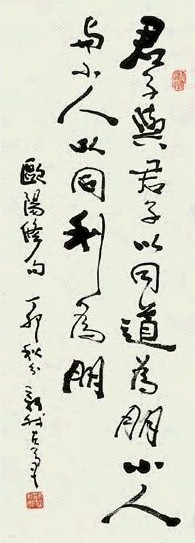 君子與君子以同道為朋小人
與小人以同利為朋
歐陽修句
丁卯秋分